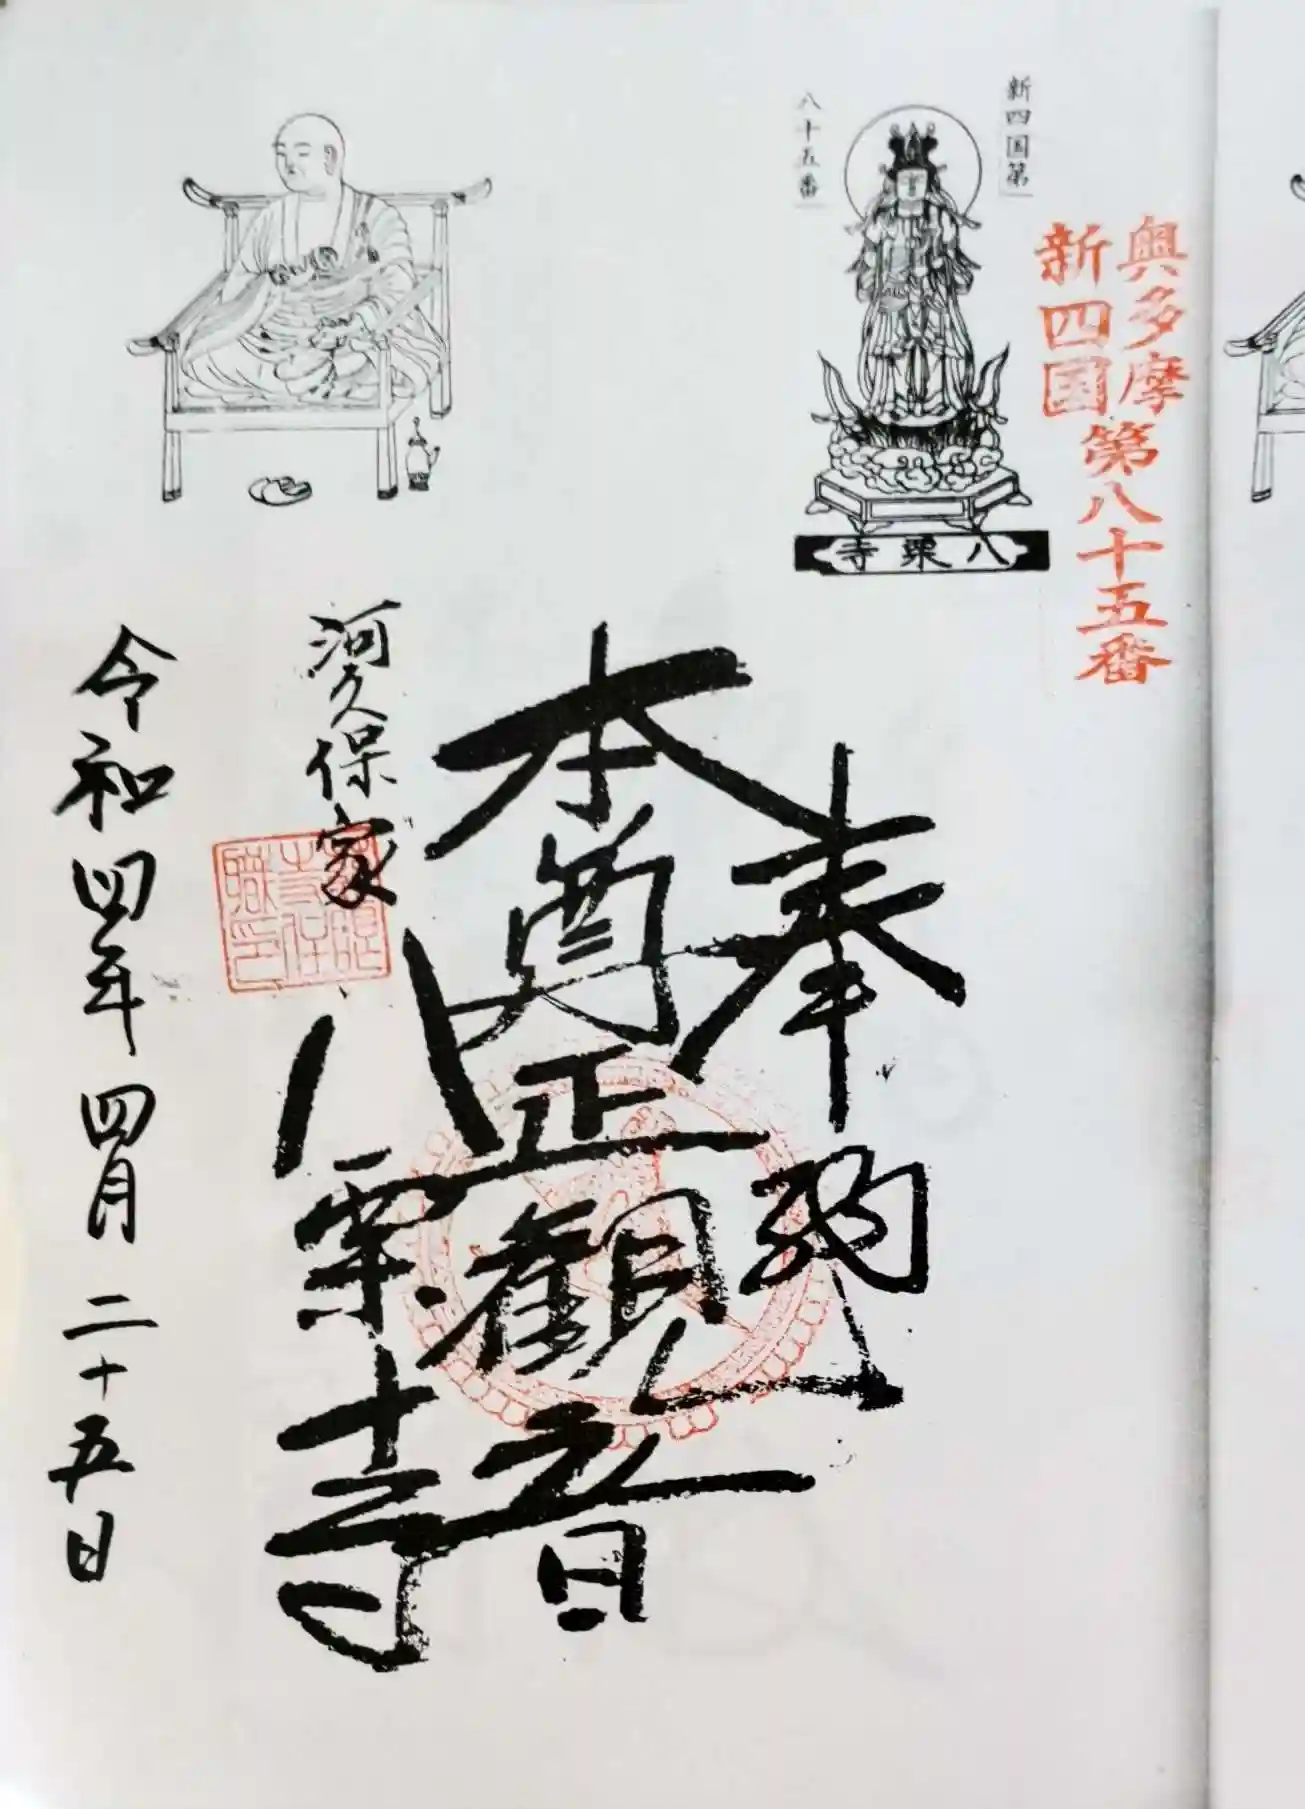 奥多摩
新四国
第八十五番
新四国第
八十五番
八栗寺
奉納
本尊正観音
八栗寺
河久保家
令和四年四月二十五日